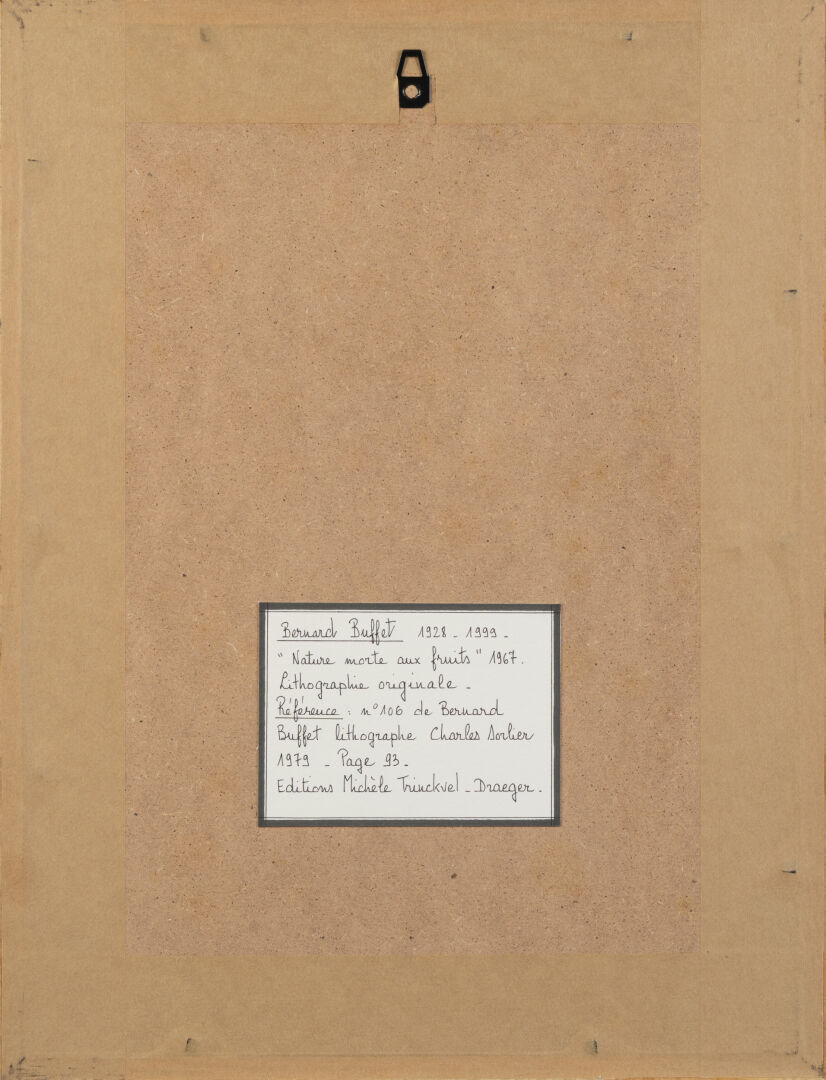 Bernard Buffet 1928 - 1999 -
" Nature morte aux fruits " 1967.
Lithographie originale -
Référence : n°106 de Bernard
Buffet lithographe Charles Sorlier
1979 - Page 93 -
Editions Michèle Trinckvel - Draeger.